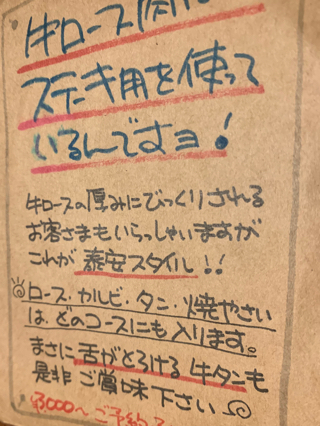 牛ロース
ステーキ用を使って
いるんですヨ!
牛ロースの厚みにびっくりされる
お客さまもいらっしゃいますが
これが 泰安スタイル!!
ロース・カルビ・タン・焼やさい
は、どのコースにも入ります。
まさに舌がとろける牛タンも
是非ご賞味下さい
¥3000〜ご予約